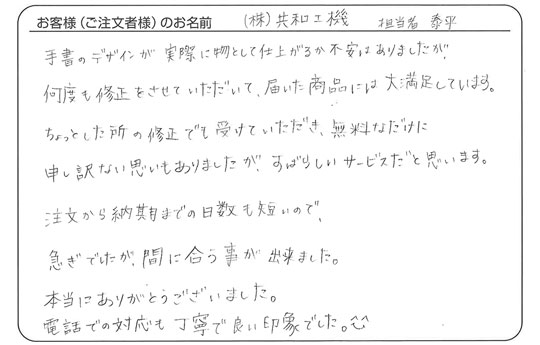 お客様（ご注文者様）のお名前 （株）共和工機 担当者 泰平
手書のデザインが実際に物として仕上がるか不安はありましたが、
何度も修正をさせていただいて、届いた商品には大満足しています。
ちょっとした所の修正でも受けていただき、無料なだけに
申し訳ない思いもありましたが、すばらしいサービスだと思います。
注文から納期までの日数も短いので、
急ぎでしたが、間に合う事が出来ました。
本当にありがとうございました。
電話での対応も丁寧で良い印象でした。